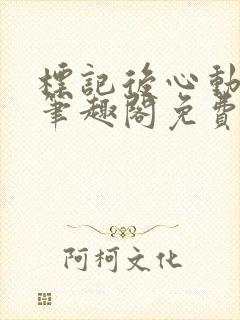 標記後心動
筆趣閣免費
阿柯文化